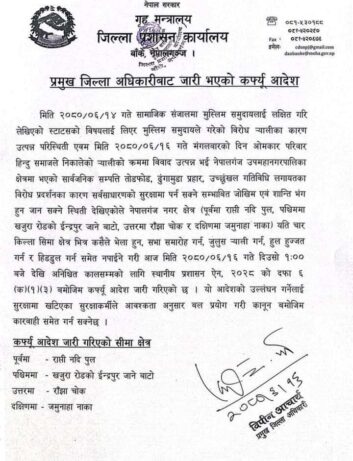 नेपाल सरकार
गृह मन्त्रालय
जिल्ला प्रशासन कार्यालय
बाँके, नेपालगन्ज ।
प्रमुख जिल्ला अधिकारीबाट जारी भएको कर्फ्यू आदेश
मिति २०८०/०६/१४ गते सामाजिक संजालमा मुस्लिम समुदायलाई लक्षित गरि
लेखिएको स्टाटसको विषयलाई लिएर मुस्लिम समुदायले गरेको विरोध ऱ्यालीका कारण
उत्पन्न परिस्थिती एवम मिति २०८०/०६/१६ गते मंगलवारको दिन ओमकार परिवार
हिन्दु समाजले निकालेको ऱ्यालीको क्रममा विवाद उत्पन्न भई नेपालगंज उपमहानगरपालिका
क्षेत्रमा भएको सार्वजनिक सम्पत्ति तोडफोड, ढुंगामुढा प्रहार, उच्छृंखल गतिविधि लगायतका
विरोध प्रदर्शनका कारण सर्वसाधारणको सुरक्षामा पर्न सक्ने सम्भावित जोखिम एवं शान्ति भंग
हुन जान सक्ने स्थिती देखिएकोले नेपालगन्ज नगर क्षेत्र (पूर्वमा राप्ती नदि पुल, पश्चिममा
खजुरा रोडको ईन्द्रपुर जाने बाटो, उत्तरमा राँझा चोक र दक्षिणमा जमुनाहा नाका) यति चार
किल्ला सिमा क्षेत्र भित्र कसैले भेला हुन, सभा समारोह गर्न, जुलुस ऱ्याली गर्न, हुल हुज्जत
गर्न र हिडडुल गर्न समेत नपाईने गरी आज मिति २०८०/०६/१६ गते दिउसो १:००
बजे देखि अनिश्चित कालसम्मको लागि स्थानीय प्रशासन ऐन, २०२८ को दफा ६
(क)(१)(३) बमोजिम कर्फ्यू आदेश जारी गरिएको छ । यो आदेशको उल्लंघन गर्नेलाई
सुरक्षामा खटिएका सुरक्षाकर्मीले आवश्कता अनुसार बल प्रयोग गरी कानून बमोजिम
कारवाही समेत गर्न सक्नेछ ।
कर्फ्यू आदेश जारी गरिएको सीमा क्षेत्र
पूर्वमा - राप्ती नदि पुल
पश्चिममा - खजुरा रोडको ईन्द्रपुर जाने बाटो
उत्तरमा - राँझा चोक
दक्षिणमा - जमुनाहा नाका
२०८०।६।१६
विपीन आचार्य
प्रमुख जिल्ला अधिकारी